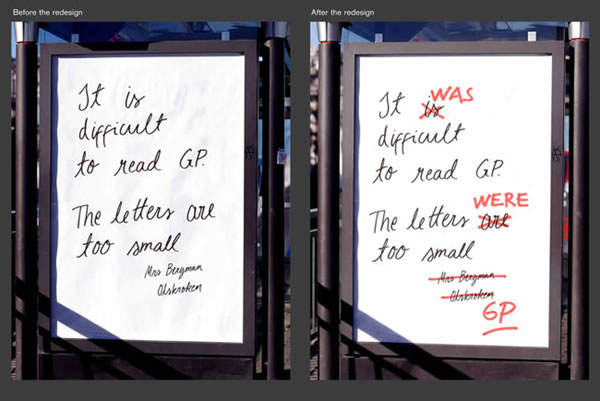 Before the redesign
It is
difficult
to read GP.
The letters are
too small
Mrs Bergman
Olskroken
After the redesign
It is WAS
difficult
to read GP.
WERE
The letters are
too small
Mrs Bergman
Olskroken
GP